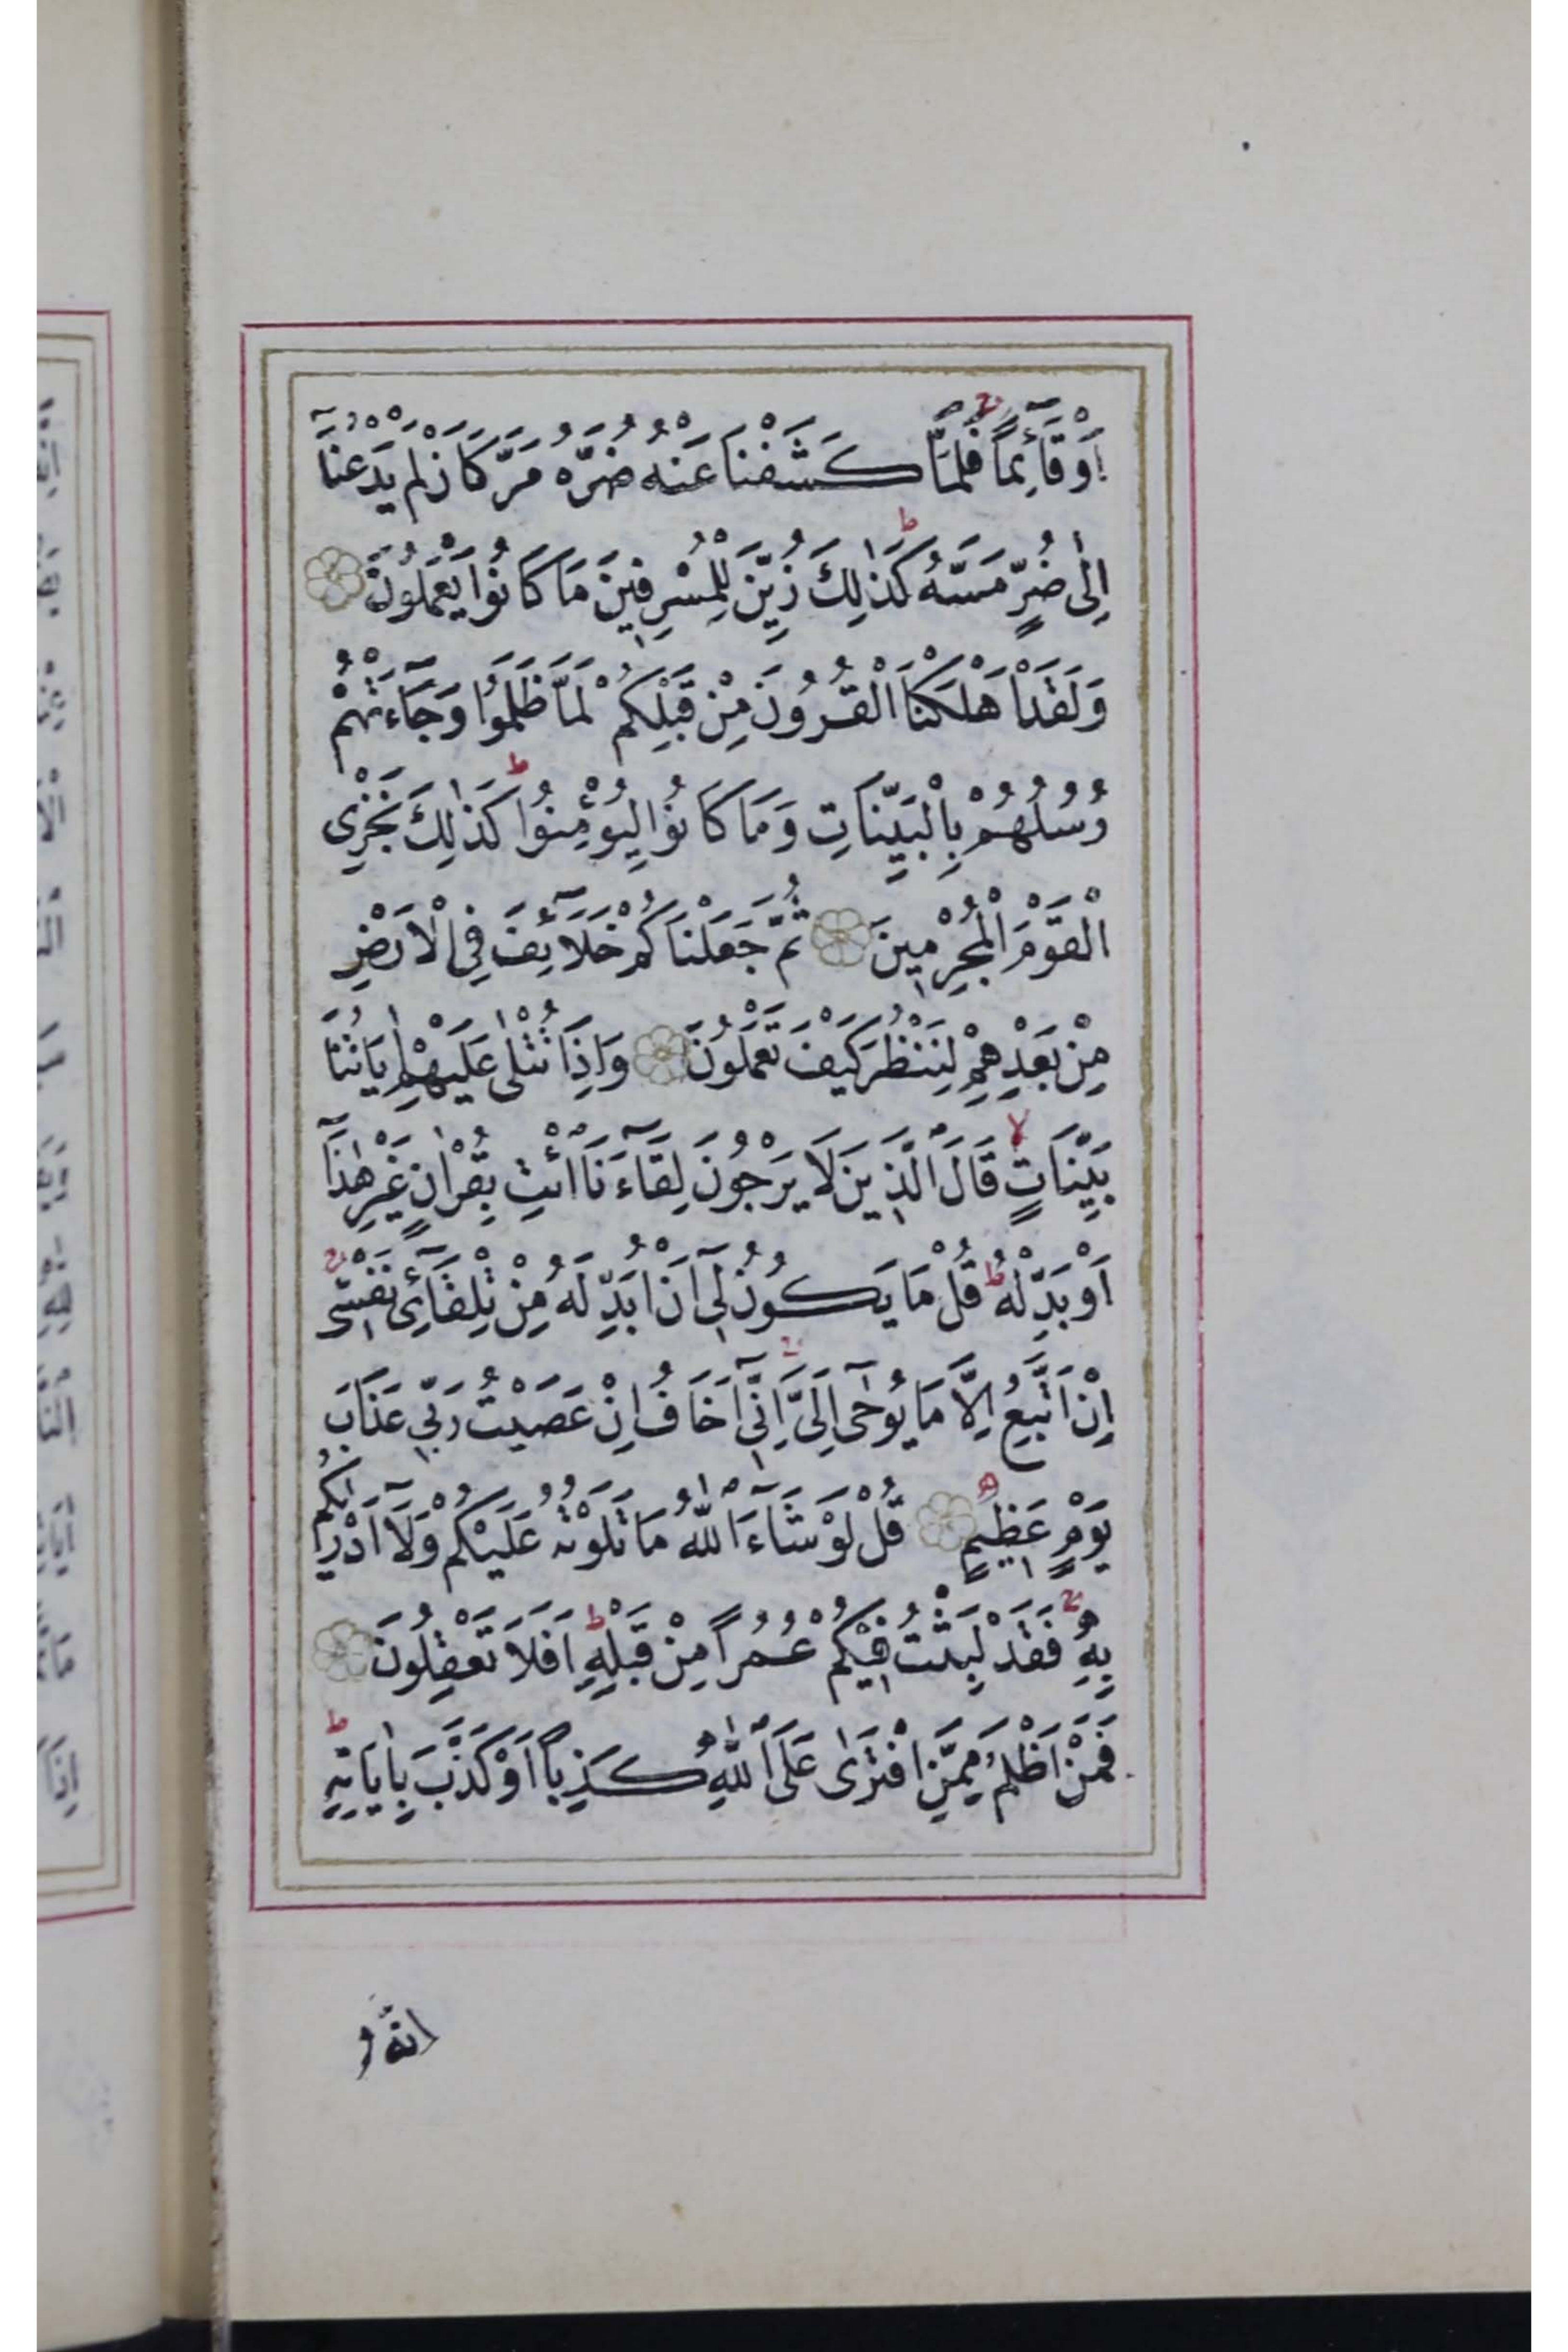 اَوْ قَٓائِمًاۚ فَلَمَّا كَشَفْنَا عَنْهُ ضُرَّهُ مَرَّ كَاَنْ لَمْ يَدْعُنَٓا
اِلٰى ضُرٍّ مَسَّهُۜ كَذٰلِكَ زُيِّنَ لِلْمُسْرِفِينَ مَا كَانُوا يَعْمَلُونَ
وَلَقَدْ اَهْلَكْنَا الْقُرُونَ مِنْ قَبْلِكُمْ لَمَّا ظَلَمُوا وَجَٓاءَتْهُمْ
رُسُلُهُمْ بِالْبَيِّنَاتِ وَمَا كَانُوا لِيُؤْمِنُواۜ كَذٰلِكَ نَجْزِي
الْقَوْمَ الْمُجْرِمِينَ ثُمَّ جَعَلْنَاكُمْ خَلَٓائِفَ فِي الْاَرْضِ
مِنْ بَعْدِهِمْ لِنَنْظُرَ كَيْفَ تَعْمَلُونَ وَاِذَا تُتْلٰى عَلَيْهِمْ اٰيَاتُنَا
بَيِّنَاتٍۙ قَالَ الَّذِينَ لَا يَرْجُونَ لِقَٓاءَنَا ائْتِ بِقُرْاٰنٍ غَيْرِ هٰذَٓا
اَوْ بَدِّلْهُۜ قُلْ مَا يَكُونُ لِٓي اَنْ اُبَدِّلَهُ مِنْ تِلْقَٓائِ۬ نَفْسِيۚ
اِنْ اَتَّبِعُ اِلَّا مَا يُوحٰٓى اِلَيَّۚ اِنِّٓي اَخَافُ اِنْ عَصَيْتُ رَبِّي عَذَابَ
يَوْمٍ عَظِيمٍ قُلْ لَوْ شَٓاءَ اللّٰهُ مَا تَلَوْتُهُ عَلَيْكُمْ وَلَٓا اَدْرٰيكُمْ
بِهِۚ فَقَدْ لَبِثْتُ فِيكُمْ عُمُرًا مِنْ قَبْلِهِۜ اَفَلَا تَعْقِلُونَ
فَمَنْ اَظْلَمُ مِمَّنِ افْتَرٰى عَلَى اللّٰهِ كَذِبًا اَوْ كَذَّبَ بِاٰيَاتِهِۜ
انهُ